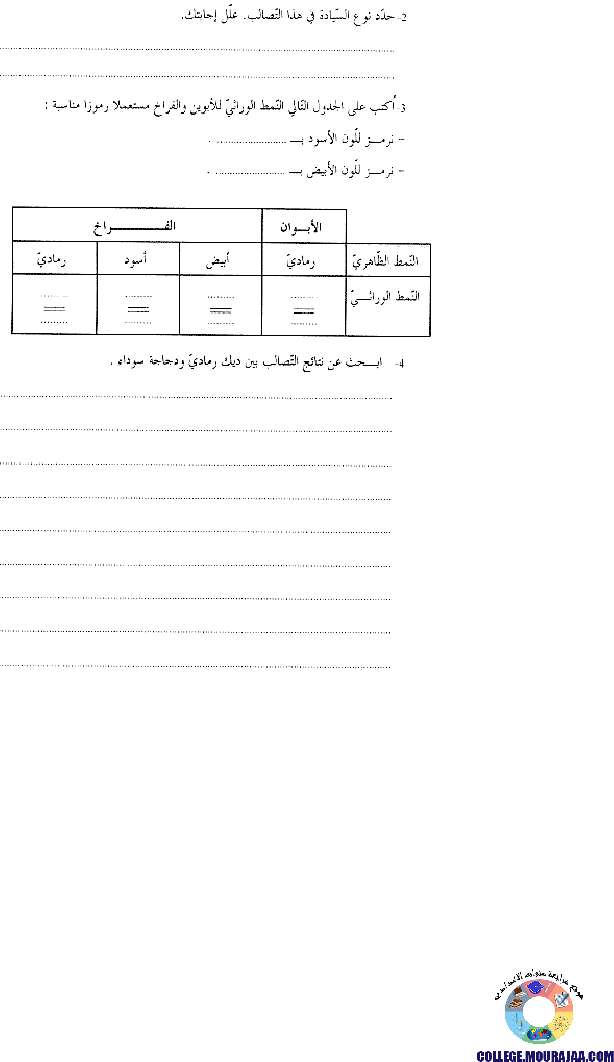 2- حدّد نوع السّيادة في هذا التّصالب. علّل إجابتك.
3- أكتب على الجدول التّالي النّمط الوراثيّ للأبوين والفراخ مستعملا رموزا مناسبة :
– نرمــز للّون الأسود بـــ ........................ .
– نرمــز للّون الأبيض بـــ ........................ .
الأبــوان الفـــــــراخ
النّمط الظّاهريّ رماديّ أبيض أسود رماديّ
النّمط الوراثــيّ
4- ابــحث عن نتائج التّصالب بين ديك رماديّ ودجاجة سوداء .
موقع مراجعة منهاج الاعدادي
COLLEGE.MOURAJAA.COM